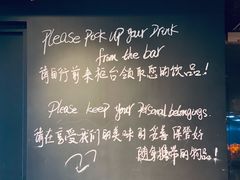 Please Pick up your Drink
from the bar
请自行前来柜台领取您的饮品！
Please keep your personal belongings.
请在享受我们的美味时 妥善保管好
随身携带的物品！